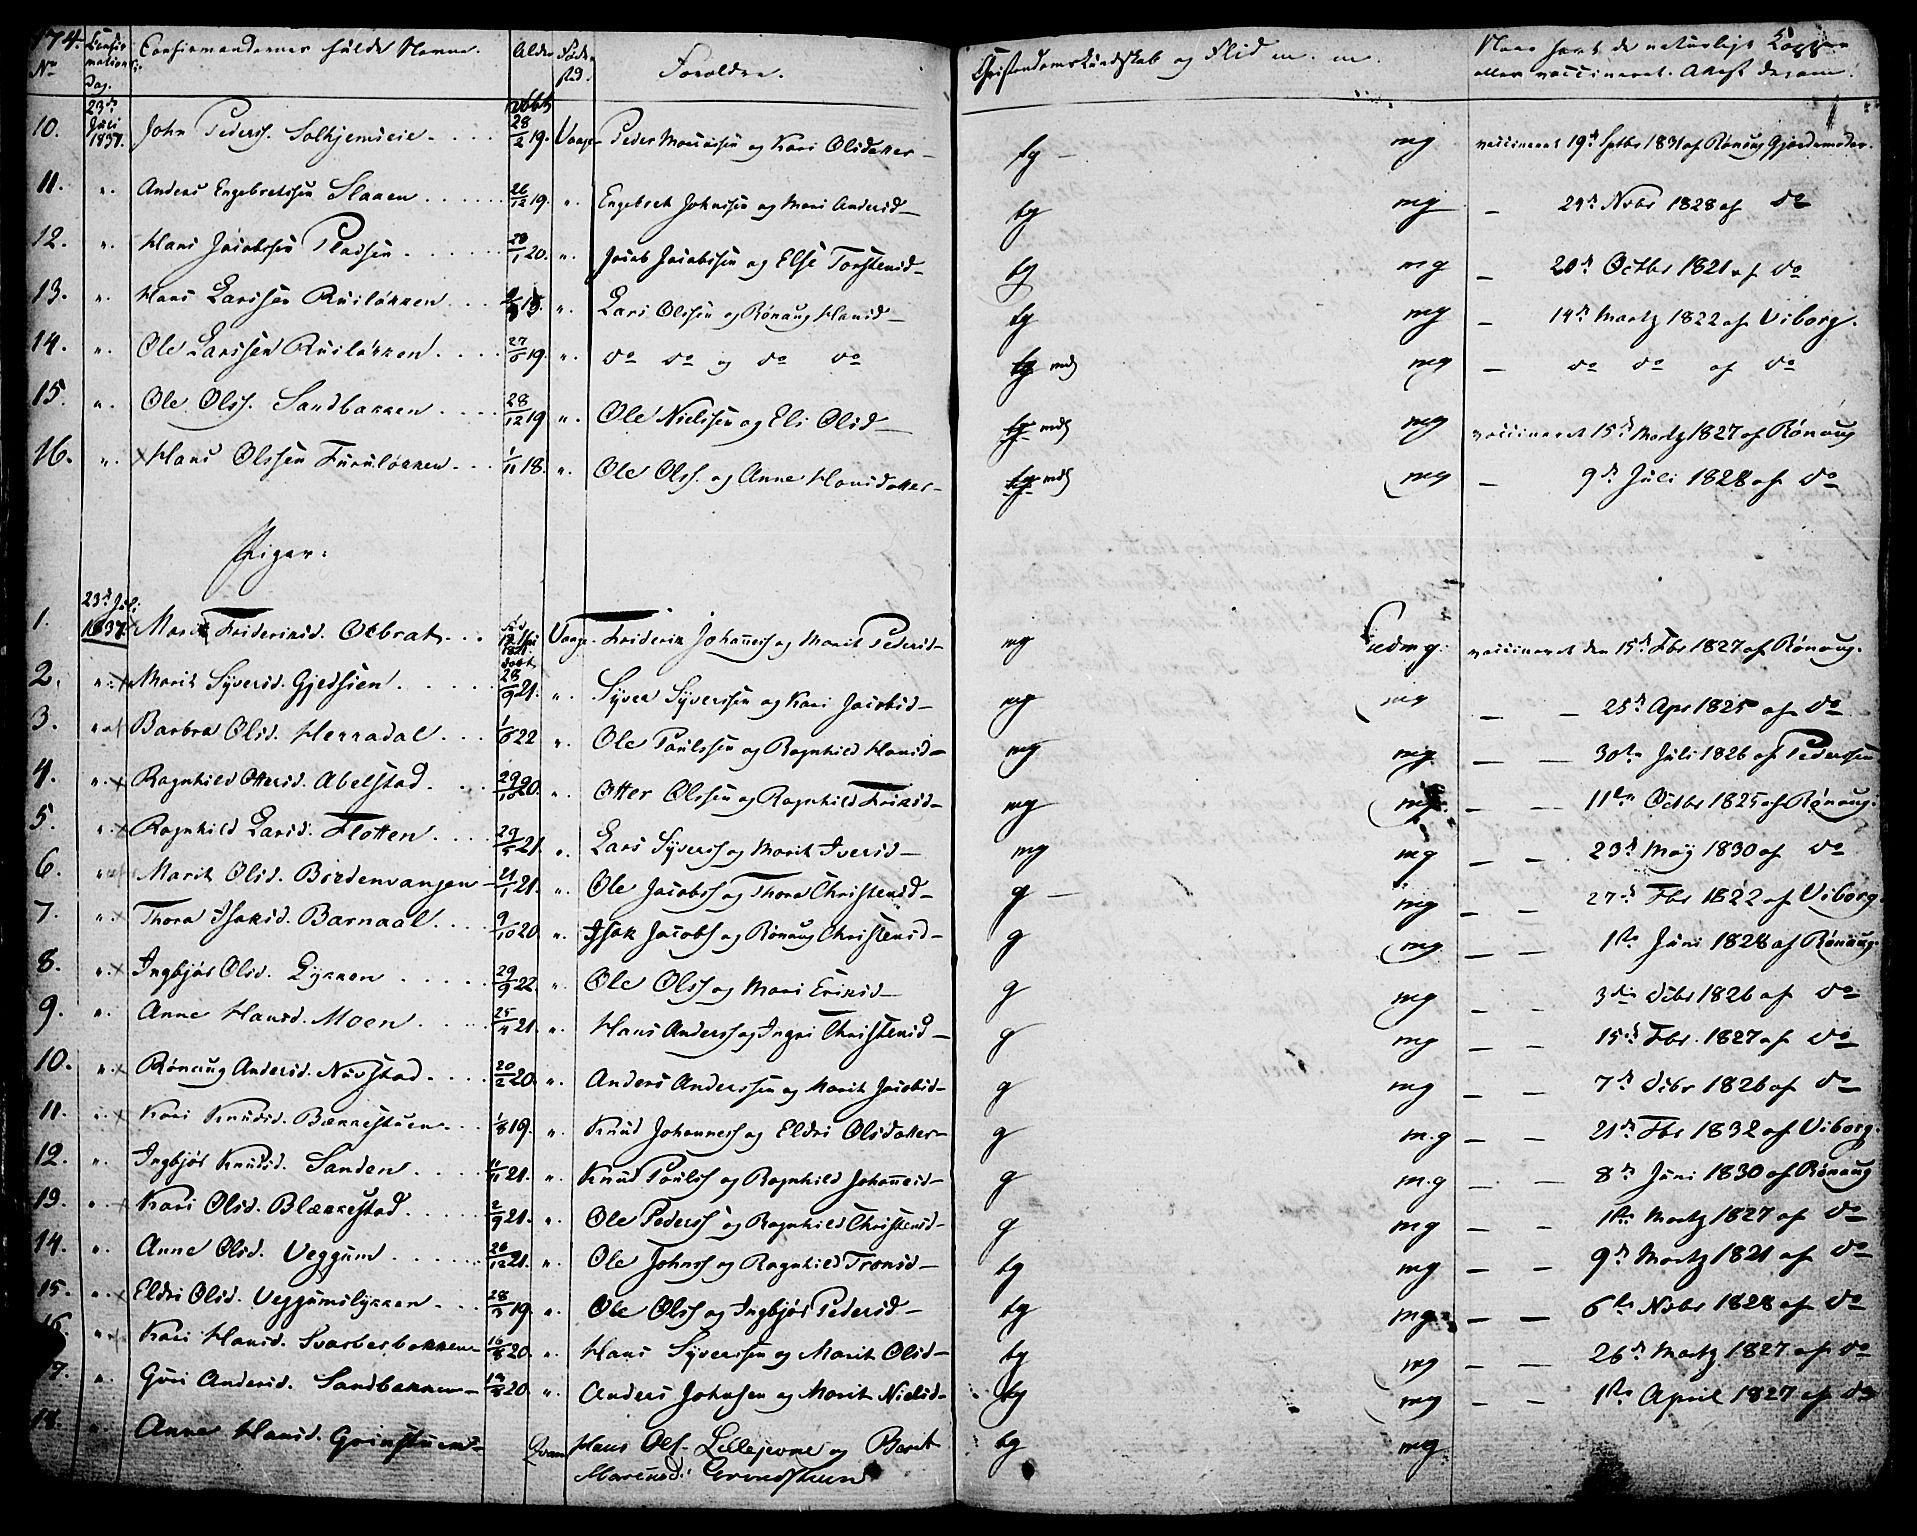 174.
No
Confirmations Dag.
Confirmandernes fulde Navne.
Alder
Føde sted.
Forældre.
Christendomskundskab og Flid m. m.
Naar havt de naturlige Kopper
eller vaccineret. Attest derom.
23de Juli 1837.
10. John Peders. Solhjemseie 28/2 19. Vaage Peder Mauritsen og Kari Olsdatter tg mg vaccineret 19de Septbr 1831 af Rønnug Gjordemoder.
11. " Anders Engebretsen Slaaen 26/12 19. " Engebret Johnsen og Mari Andersd tg mg 29de Novbr 1828 af do
12. " Hans Jacobsen Pladsen 28/1 20. " Jacob Jacobsen og Else Torstensd tg mg 20de Octbr 1821 af do
13. " Hans Larssen Ruiløkken " Lars Olssen og Rønaug Hansd tg mg 14de Martz 1822 af Viborg.
14. " Ole Larssen Ruiløkken 19. " do do og do do tg mdl mg do do af do
15. " Ole Olss. Sandbakken 28/12 19 " Ole Nielssen og Eli Olsd tg mdl mg vaccineret 15de Martz 1827 af Rønaug
16. " Hans Olssen Furuløkken 18. " Ole Olss. og Anne Hansdatter tg mdl mg 9de Juli 1828 af do
Piger:
23de Juli 1837
1. Mari Frideriksd. Odbrat Vaage. Friderik Johanness og Marit Pedersd mg Flid mg. vaccineret den 15de Fbr 1827 af Rønaug.
2. " Marit Syversd. Gjedsien 28/9 21. " Syver Syverssen og Kari Jacobsd mg mg 25de Apr 1825 af do
3. " Barbra Olsd. Herradal 22 " Ole Paulssen og Ragnhild Hansd mg mg 30te Juli 1826 af Pederssen
4. " Ragnhild Ottersd. Abelstad 29/10 20. " Otter Olssen og Ragnhild Eriksd mg mg 11te Octbr 1825 af Rønaug.
5. " Ragnhild Larsd. Flotten 21. " Lars Syverss og Marit Iversd mg mg 23de May 1830 af do
6. " Marit Olsd. Birdenvangen 21. " Ole Jacobss og Thora Christensd g mg 27de Fbr 1822 af Viborg.
7. " Thora Isaksd. Barnaal 9/10 20. " Isak Jacobs og Rønaug Christensd g mg 1ste Juni 1828 af Rønnug.
8. " Ingbjør Olsd. Lykken 29/9 22. " Ole Olss og Mari Eriksd g mg 3die Decbr 1826 af do
9. " Anne Hansd. Moen 21. " Hans Anderss og Ingri Christensd g mg 15de Fbr. 1827 af do
10. " Rønaug Andersd. Navstad 20/2 20. " Anders Anderssen og Marit Jacobsd g mg 7de Decbr 1826 af do
11. " Kari Knudsd. Bækkestuen 1/8 19. " Knud Johanness og Eldri Olsdatter g m.g 21de Fbr 1832 af Viborg.
12. " Ingbjør Knudsd. Sanden 21. " Knud Paulss og Ragnhild Johannesd g m.g 8de Juni 1830 af Rønaug
13. " Kari Olsd. Blækkestad 2/9 21. " Ole Pederss og Ragnhild Christensd g mg 1ste Martz 1827 af do
14. " Anne Olsd. Veggum 26/12 21. " Ole Johnss og Ragnhild Tronsd tg mg 9de Martz 1821 af do
15. " Eldri Olsd. Veggumslykken 19. " Ole Olss og Ingbjør Pedersd tg mg 6te Novbr 1828 af do
16. " Kari Hansd. Svarberbakken 16/8 20. " Hans Syverssen og Marit Olsd tg mg 26de Martz 1827 af do
17. " Guri Andersd. Sandbakken 20. " Anders Johnsen og Marit Nielsd tg mg 1ste April 1827 af do
18. " Anne Hansd. Grinstuen Qvam Hans Ols. Lillejevne og Barit tg mg
Marcusd.